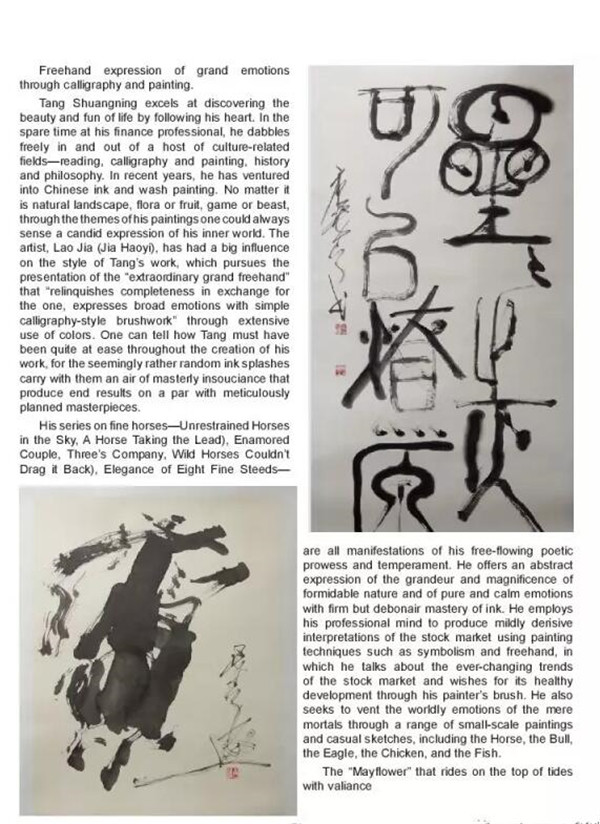 Freehand expression of grand emotions
through calligraphy and painting.
Tang Shuangning excels at discovering the
beauty and fun of life by following his heart. In the
spare time at his finance professional, he dabbles
freely in and out of a host of culture-related
fields—reading, calligraphy and painting, history
and philosophy. In recent years, he has ventured
into Chinese ink and wash painting. No matter it
is natural landscape, flora or fruit, game or beast,
through the themes of his paintings one could always
sense a candid expression of his inner world. The
artist, Lao Jia (Jia Haoyi), has had a big influence
on the style of Tang's work, which pursues the
presentation of the "extraordinary grand freehand"
that "relinquishes completeness in exchange for
the one, expresses broad emotions with simple
calligraphy-style brushwork" through extensive
use of colors. One can tell how Tang must have
been quite at ease throughout the creation of his
work, for the seemingly rather random ink splashes
carry with them an air of masterly insouciance that
produce end results on a par with meticulously
planned masterpieces.
His series on fine horses—Unrestrained Horses
in the Sky, A Horse Taking the Lead), Enamored
Couple, Three's Company, Wild Horses Couldn't
Drag it Back), Elegance of Eight Fine Steeds—
星々之火
可以燎原
are all manifestations of his free-flowing poetic
prowess and temperament. He offers an abstract
expression of the grandeur and magnificence of
formidable nature and of pure and calm emotions
with firm but debonair mastery of ink. He employs
his professional mind to produce mildly derisive
interpretations of the stock market using painting
techniques such as symbolism and freehand, in
which he talks about the ever-changing trends
of the stock market and wishes for its healthy
development through his painter's brush. He also
seeks to vent the worldly emotions of the mere
mortals through a range of small-scale paintings
and casual sketches, including the Horse, the Bull,
the Eagle, the Chicken, and the Fish.
The "Mayflower" that rides on the top of tides
with valiance